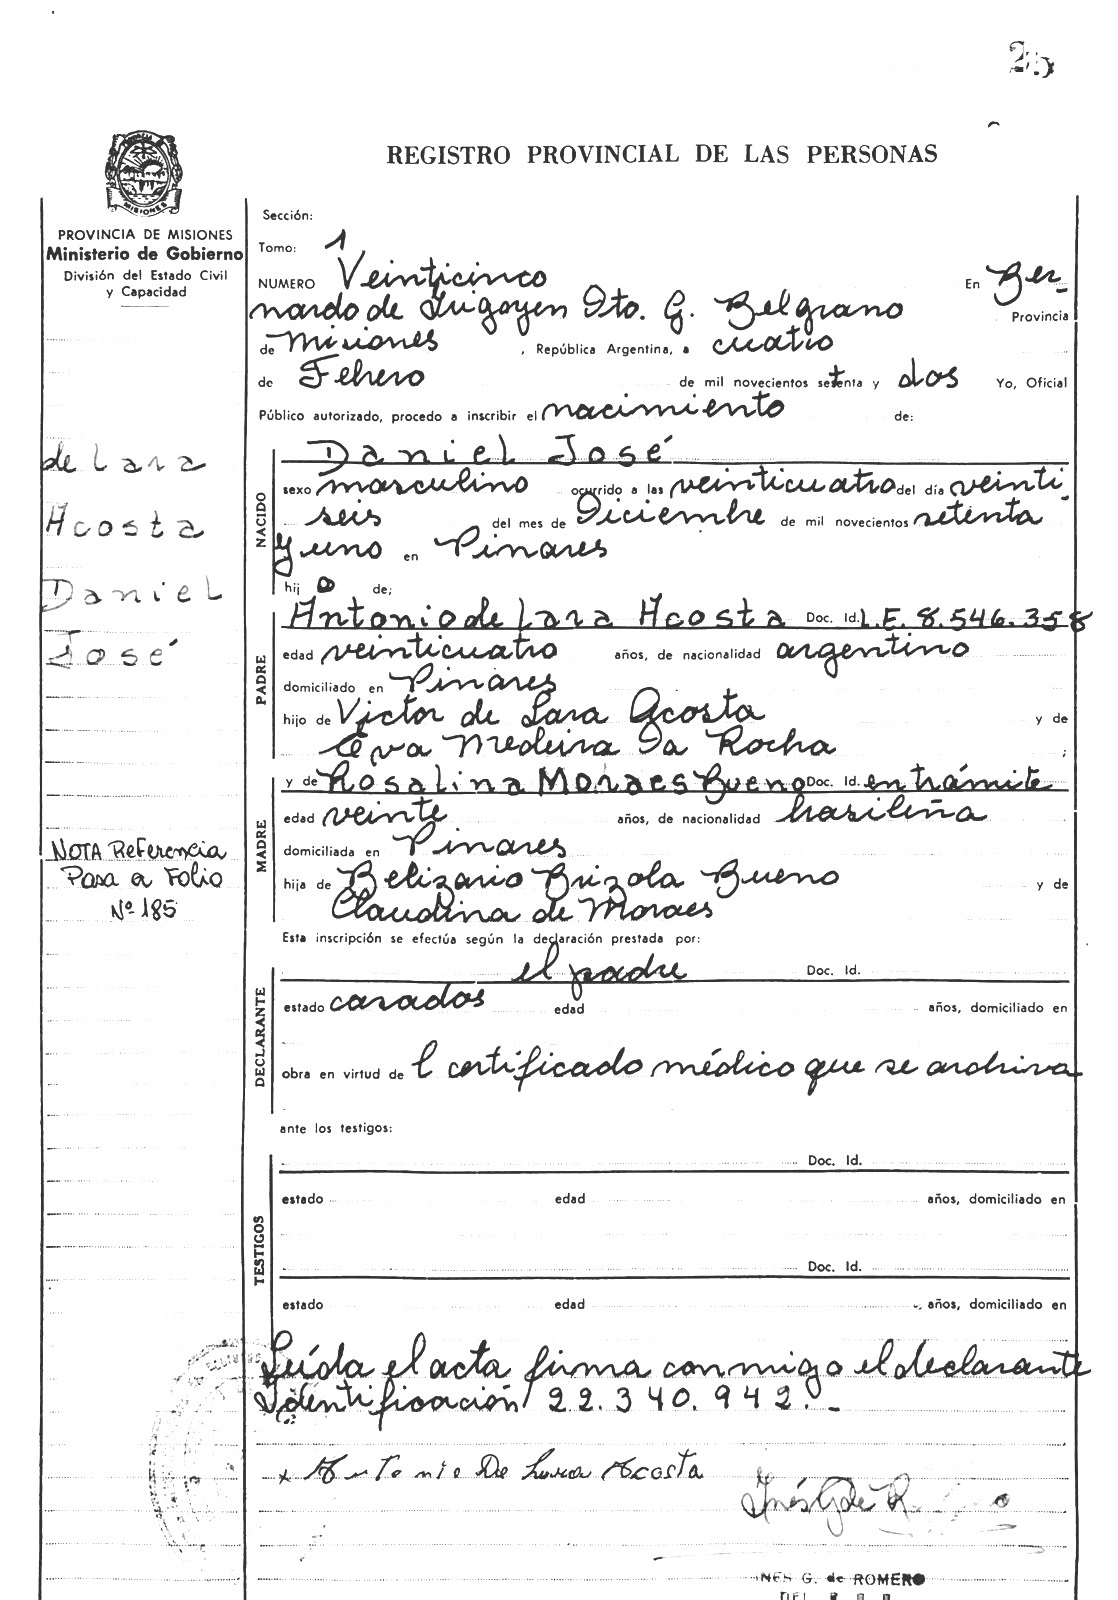 25
REGISTRO PROVINCIAL DE LAS PERSONAS
MISIONES
PROVINCIA DE MISIONES
Ministerio de Gobierno
División del Estado Civil
y Capacidad
de Lara
Acosta
Daniel
José
NOTA Referencia
Pasa a Folio
Nº 185
Sección:
Tomo: 1
NUMERO Veinticinco En Ber-
nardo de Irigoyen Dto. G. Belgrano Provincia
de Misiones, República Argentina, a cuatro
de Febrero de mil novecientos setenta y dos Yo, Oficial
Público autorizado, procedo a inscribir el nacimiento de:
NACIDO
Daniel José
sexo masculino ocurrido a las veinticuatro del día veinti-
seis del mes de Diciembre de mil novecientos setenta
y uno en Pinares
hij o de;
PADRE
Antonio de Lara Acosta Doc. Id. L.E. 8.546.358
edad veinticuatro años, de nacionalidad argentino
domiciliado en Pinares
hijo de Victor de Lara Acosta y de
Eva Medeira Da Rocha ;
MADRE
y de Rosalina Moraes Bueno Doc. Id. en trámite
edad veinte años, de nacionalidad brasileña
domiciliada en Pinares
hija de Belizario Brizola Bueno y de
Claudina de Moraes
Esta inscripción se efectúa según la declaración prestada por:
DECLARANTE
el padre Doc. Id.
estado casados edad años, domiciliado en
obra en virtud de l certificado médico que se archiva
ante los testigos:
TESTIGOS
Doc. Id.
estado edad años, domiciliado en
Doc. Id.
estado edad años, domiciliado en
Leída el acta firma conmigo el declarante
Identificación 22.340.942.-
x Antonio De Lara Acosta
Inés G de R
INES G. de ROMERO